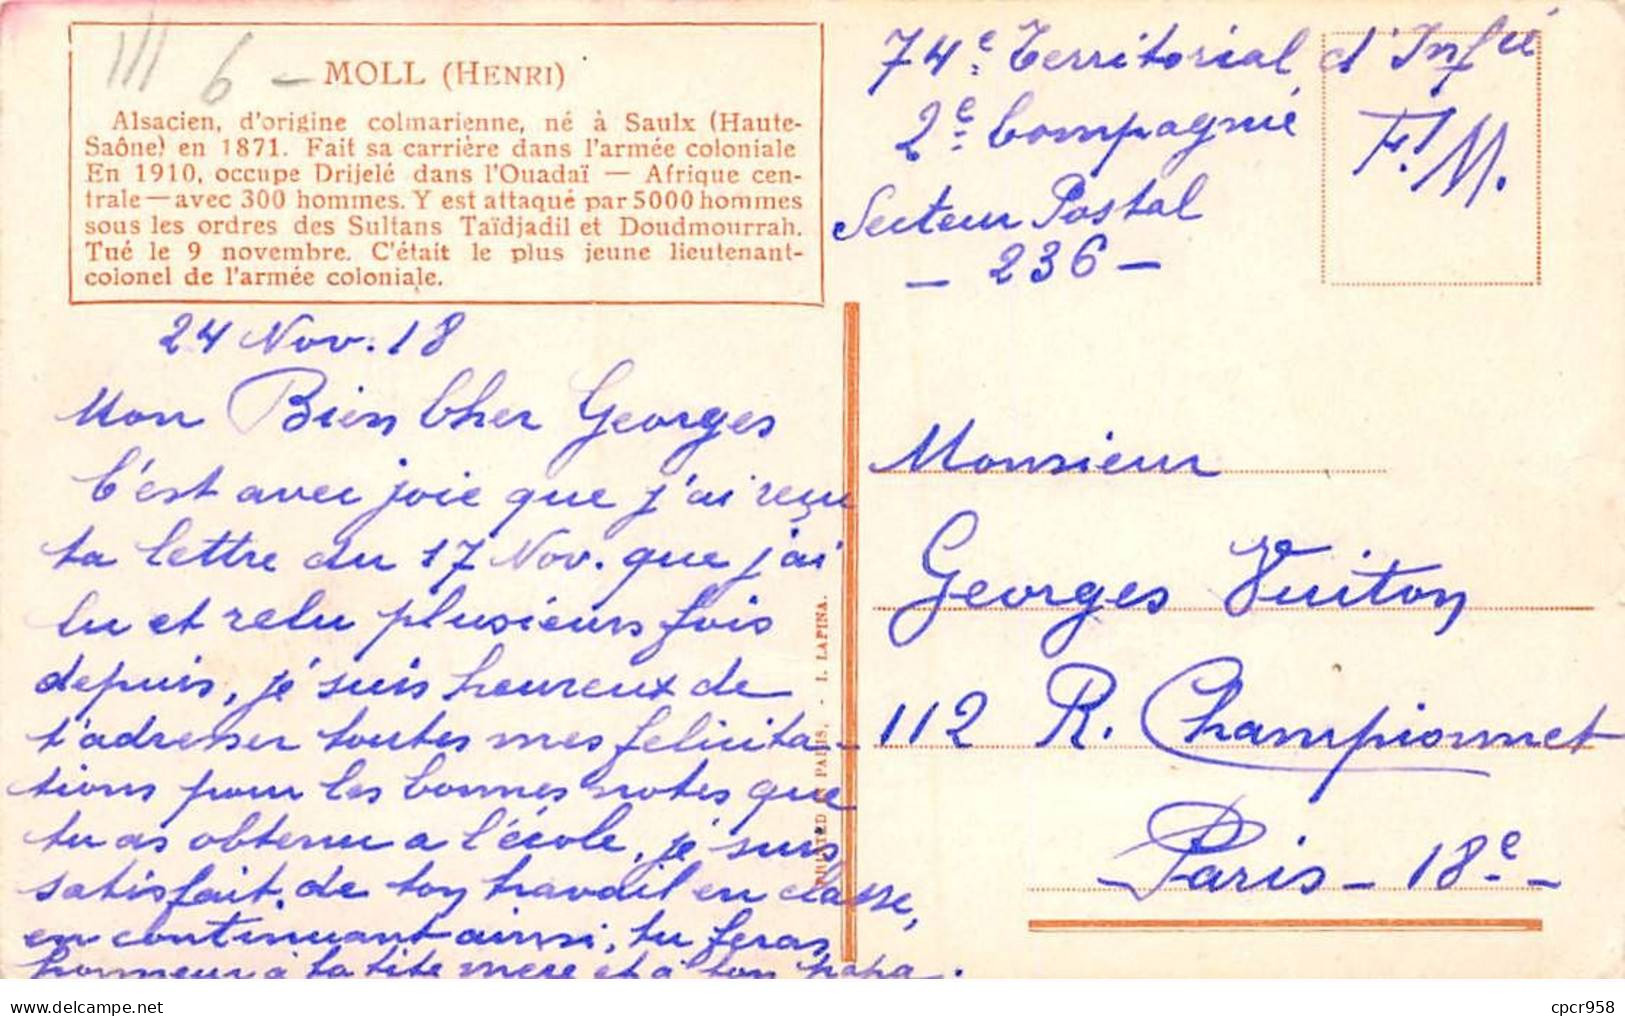 III 6 -
MOLL (HENRI)
Alsacien, d'origine colmarienne, né à Saulx (Haute-
Saône) en 1871. Fait sa carrière dans l'armée coloniale
En 1910, occupe Drijelé dans l'Ouadaï — Afrique cen-
trale — avec 300 hommes. Y est attaqué par 5000 hommes
sous les ordres des Sultans Taïdjadil et Doudmourrah.
Tué le 9 novembre. C'était le plus jeune lieutenant-
colonel de l'armée coloniale.
74e Territorial d'Infie
2e Compagnie
Secteur Postal
- 236 -
F.M.
24 Nov. 18
Mon Bien Cher Georges
C'est avec joie que j'ai reçu
ta lettre du 17 Nov. que j'ai
lu et relu plusieurs fois
depuis, je suis heureux de
t'adresser toutes mes felicita-
tions pour les bonnes notes que
tu as obtenu a l'école, je suis
satisfait, de ton travail en classe,
en continuant ainsi, tu feras
honneur à ta tite mere et à ton papa.
PRINTED IN PARIS. - I. LAPINA.
Monsieur
Georges Vuiton
112 R. Championnet
Paris - 18e -
delcampe.net
cpcr958